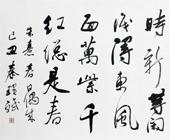 時新等閒
識得東風
面萬紫千
紅總是春
朱熹春偶成
己丑春